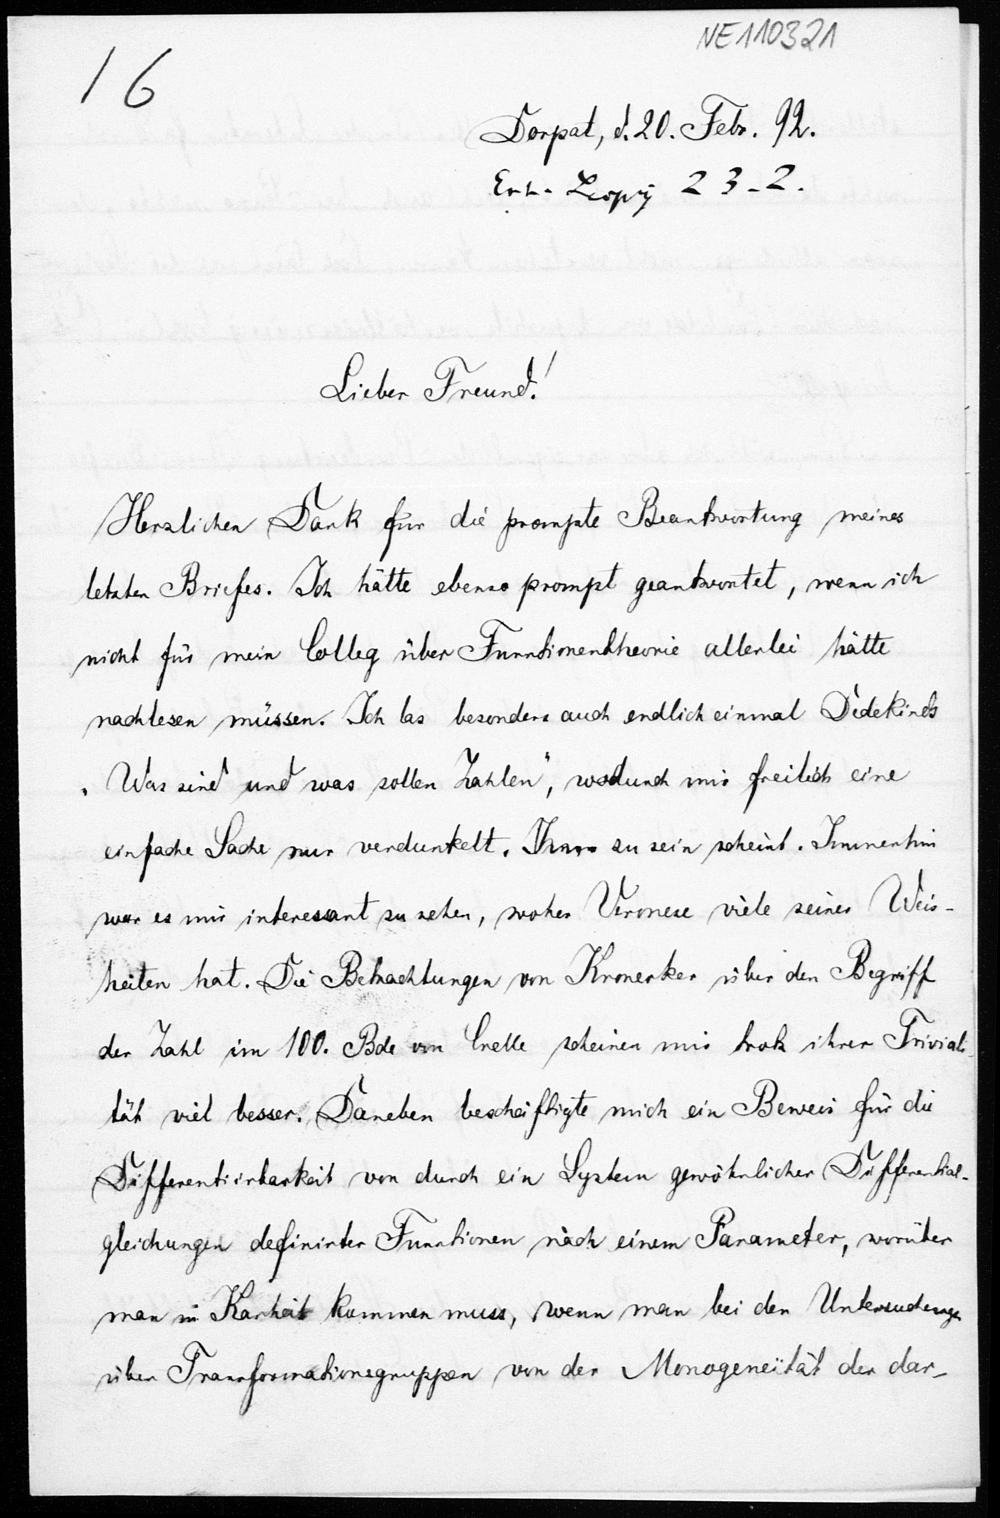 NE110321
16
Dorpat, d. 20. Febr. 92.
23-2.
Lieber Freund!
Herzlichen Dank für die prompte Beantwortung meines
letzten Briefes. Ich hätte ebenso prompt geantwortet, wenn ich
nicht für mein Colleg über Functionentheorie allerlei hätte
nachlesen müssen. Ich las besonders auch endlich einmal Dedekinds
„Was sind und was sollen Zahlen“, wodurch mir freilich eine
einfache Sache nur verdunkelt zu sein scheint. Immerhin
war es mir interessant zu sehen, woher Veronese viele seiner Weis-
heiten hat. Die Betrachtungen von Kronecker über den Begriff
der Zahl im 100. Bde von Crelle scheinen mir trotz ihrer Triviali-
tät viel besser. Daneben beschäftigte mich ein Beweis für die
Differentiirbarkeit von durch ein System gewöhnlicher Differential-
gleichungen definirter Functionen nach einem Parameter, worüber
man in Klarheit kommen muss, wenn man bei den Untersuchungen
über Transformationsgruppen von der Monogeneität der dar-